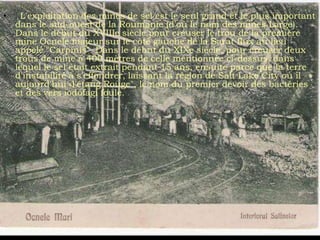 L'exploitation des mines de sel est le seul grand et le plus important
dans le sud-ouest de la Roumanie là où le nom des mines Larsei
Dans le début du XVIIIe siècle pour creuser le trou de la première
mine Ocnele
appelé "Carpinis". Dans le début du XIVe siècle, pour creuser deux
trous de mine à 400 mètres de celle mentionnée ci-dessus, dans
lequel le sel était extrait pendant 15 ans, ensuite parce que la terre
d'instabilité a s'effondrer, laissant la région de Salt Lake City où il
aujourd'hui "l'étang Rouge", le nom du premier devoir des bactéries
et des vers iodofagi foule.
Ocnele Mari
Interiorul Salinelor